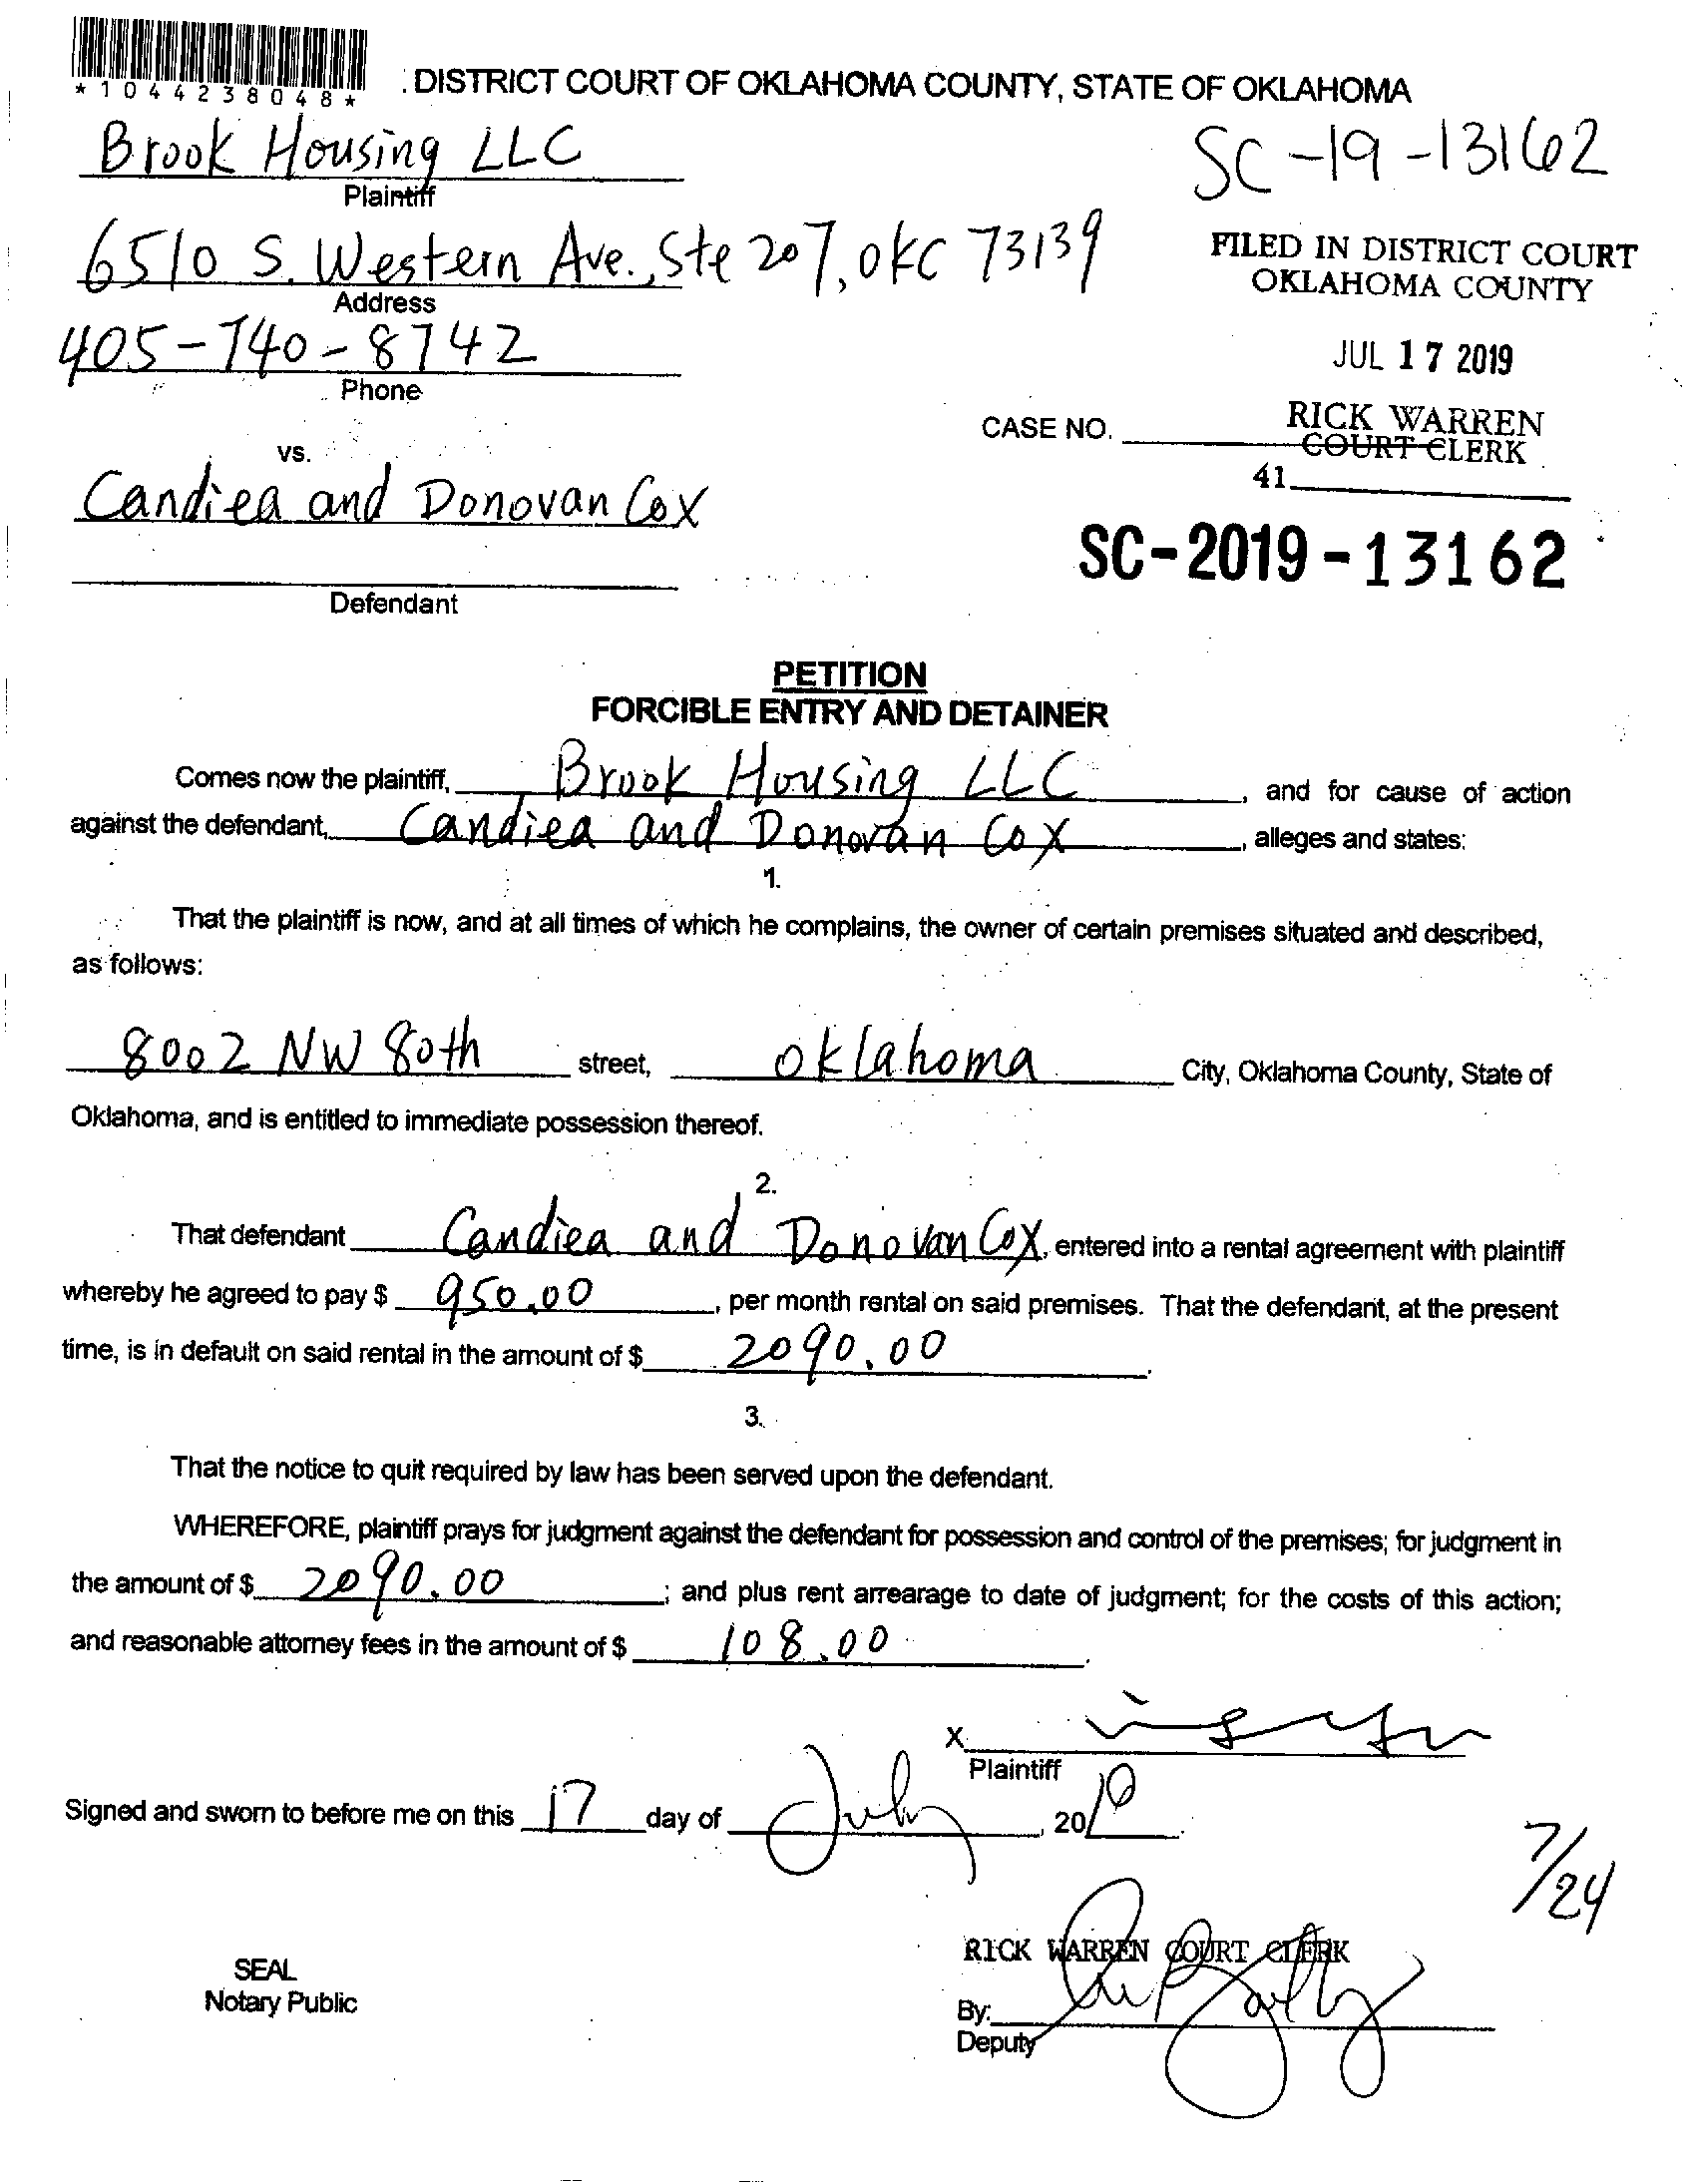 *1044238048*
DISTRICT COURT OF OKLAHOMA COUNTY, STATE OF OKLAHOMA
Brook Housing LLC
Plaintiff
SC-19-13162
6510 S. Western Ave., Ste 207, OKC 73139
Address
FILED IN DISTRICT COURT
OKLAHOMA COUNTY
405-740-8742
Phone
JUL 17 2019
RICK WARREN
COURT CLERK
CASE NO.
41
vs.
Candiea and Donovan Cox
SC-2019-13162
Defendant
PETITION
FORCIBLE ENTRY AND DETAINER
Comes now the plaintiff, Brook Housing LLC, and for cause of action
against the defendant, Candiea and Donovan Cox, alleges and states:
1.
That the plaintiff is now, and at all times of which he complains, the owner of certain premises situated and described,
as follows:
8002 NW 80th street, Oklahoma City, Oklahoma County, State of
Oklahoma, and is entitled to immediate possession thereof.
2.
That defendant Candiea and Donovan Cox, entered into a rental agreement with plaintiff
whereby he agreed to pay $ 950.00, per month rental on said premises. That the defendant, at the present
time, is in default on said rental in the amount of $ 2090.00.
3.
That the notice to quit required by law has been served upon the defendant.
WHEREFORE, plaintiff prays for judgment against the defendant for possession and control of the premises; for judgment in
the amount of $ 2090.00; and plus rent arrearage to date of judgment; for the costs of this action;
and reasonable attorney fees in the amount of $ 108.00.
X
Plaintiff
Signed and sworn to before me on this 17 day of July, 2019
7/24
RICK WARREN COURT CLERK
SEAL
Notary Public
By:
Deputy